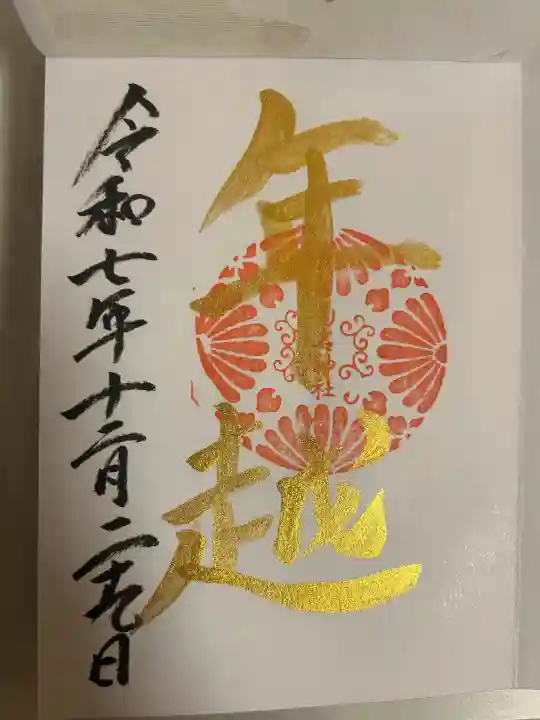 年越
神社
令和七年十二月二十九日